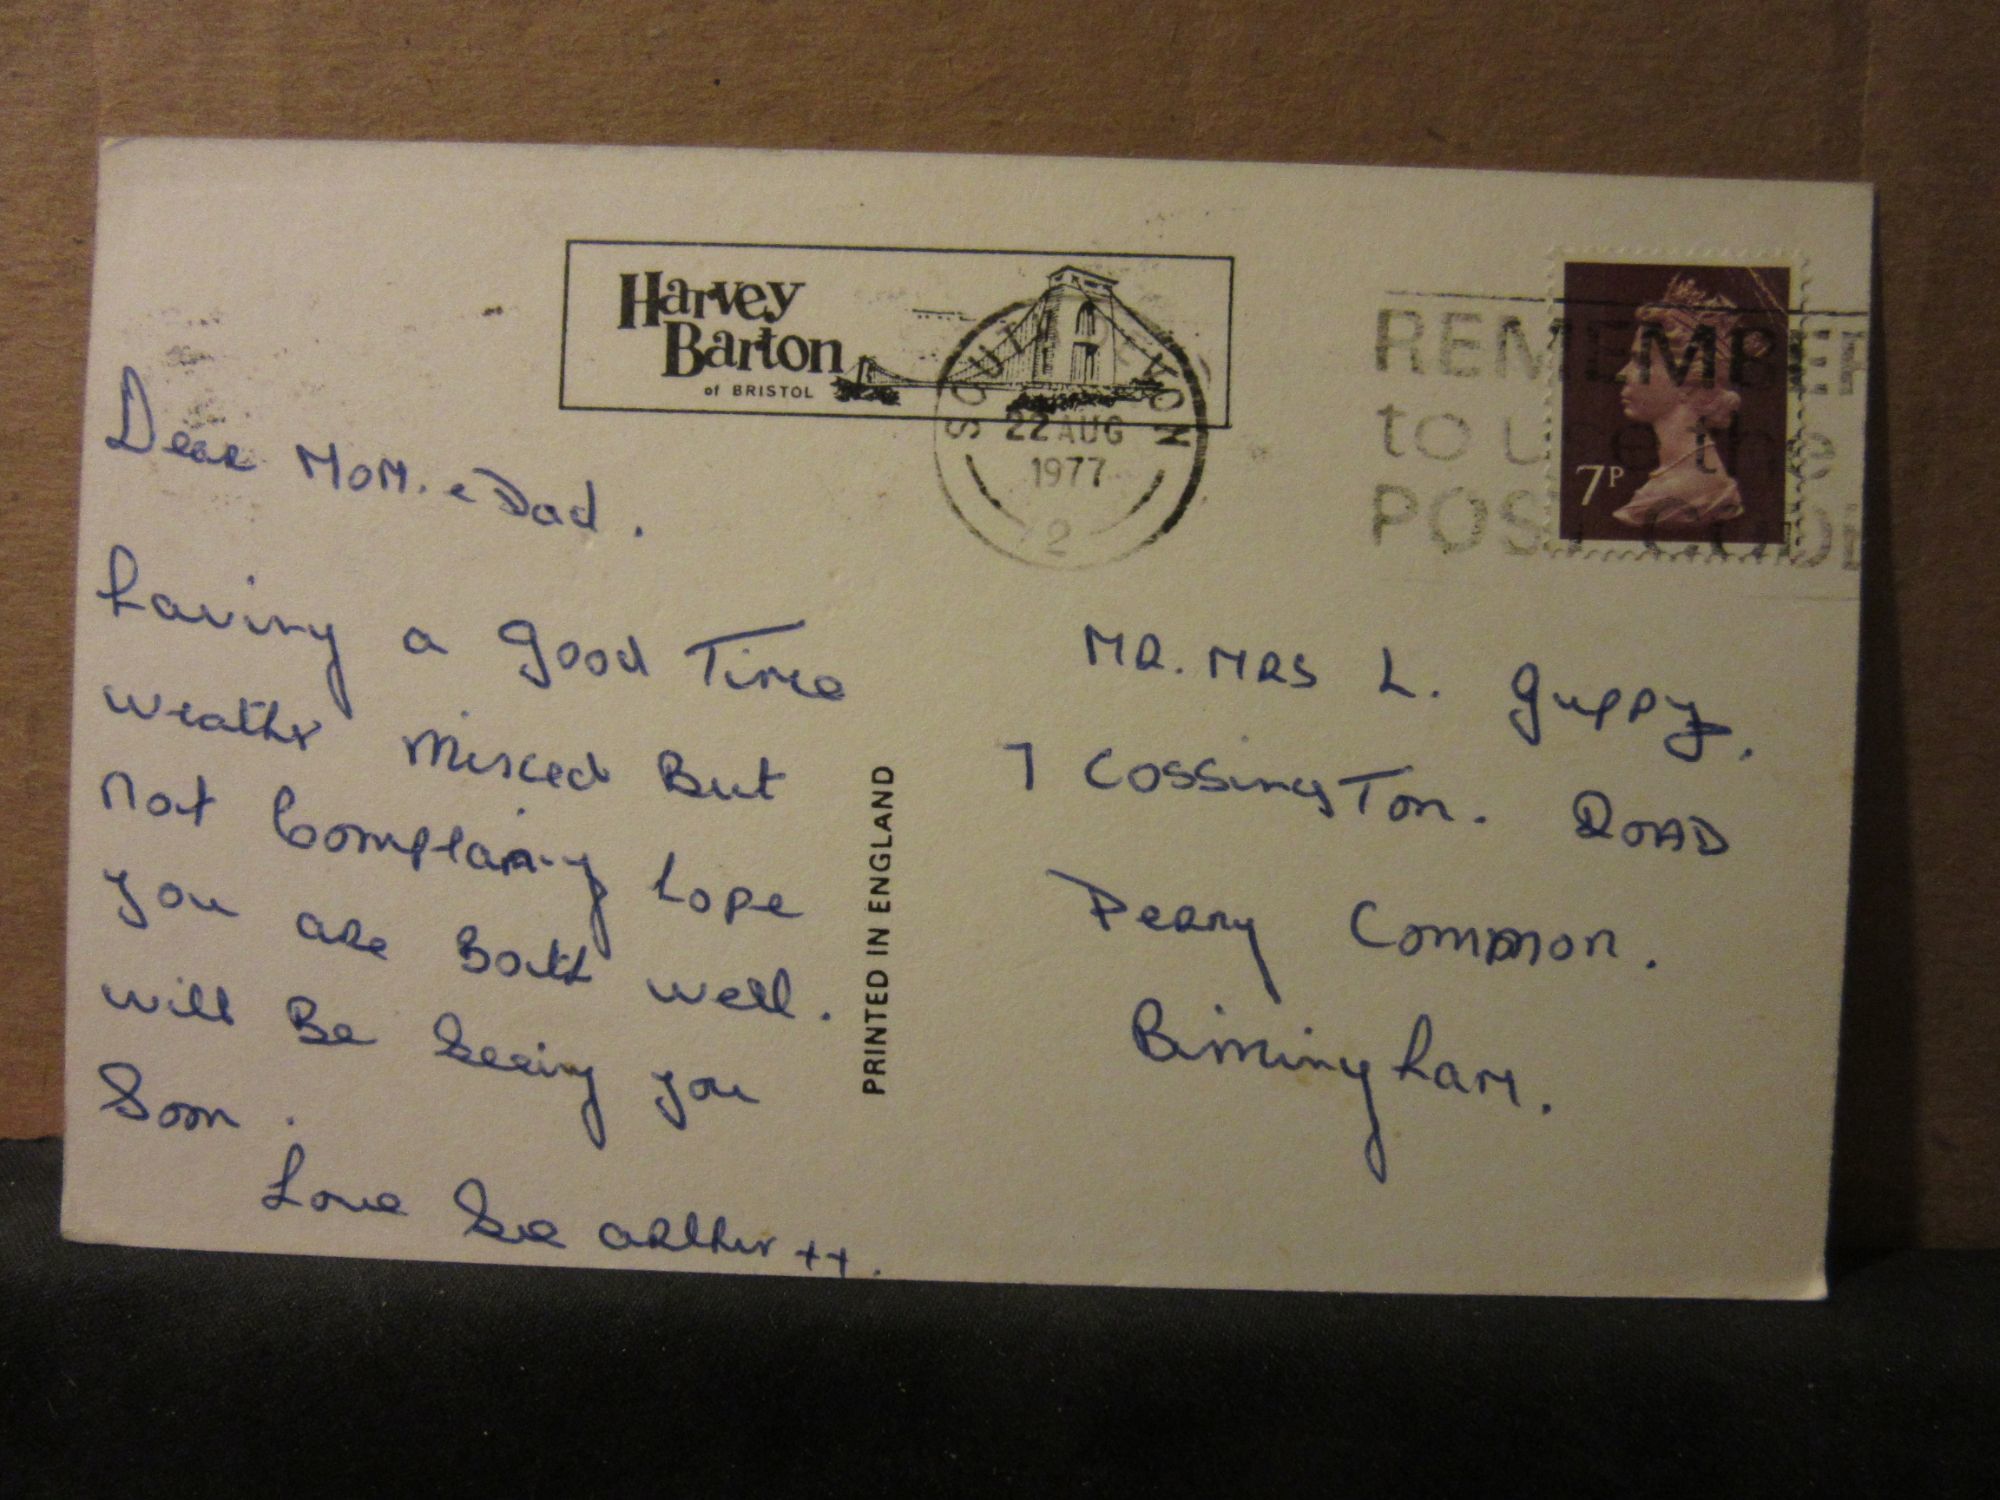 Harvey
Barton
of BRISTOL
SOUTH DEVON
22 AUG
1977
2
REMEMBER
to use the
POST CODE
7P
Dear MOM. & Dad.
having a good Time
weather mixed But
not Complaining hope
you are Both well.
will Be Seeing you
Soon.
Love Sue arthur ++.
PRINTED IN ENGLAND
MR. MRS L. guppy.
7 COSSingTon. ROAD
Perry Common.
Birmingham.